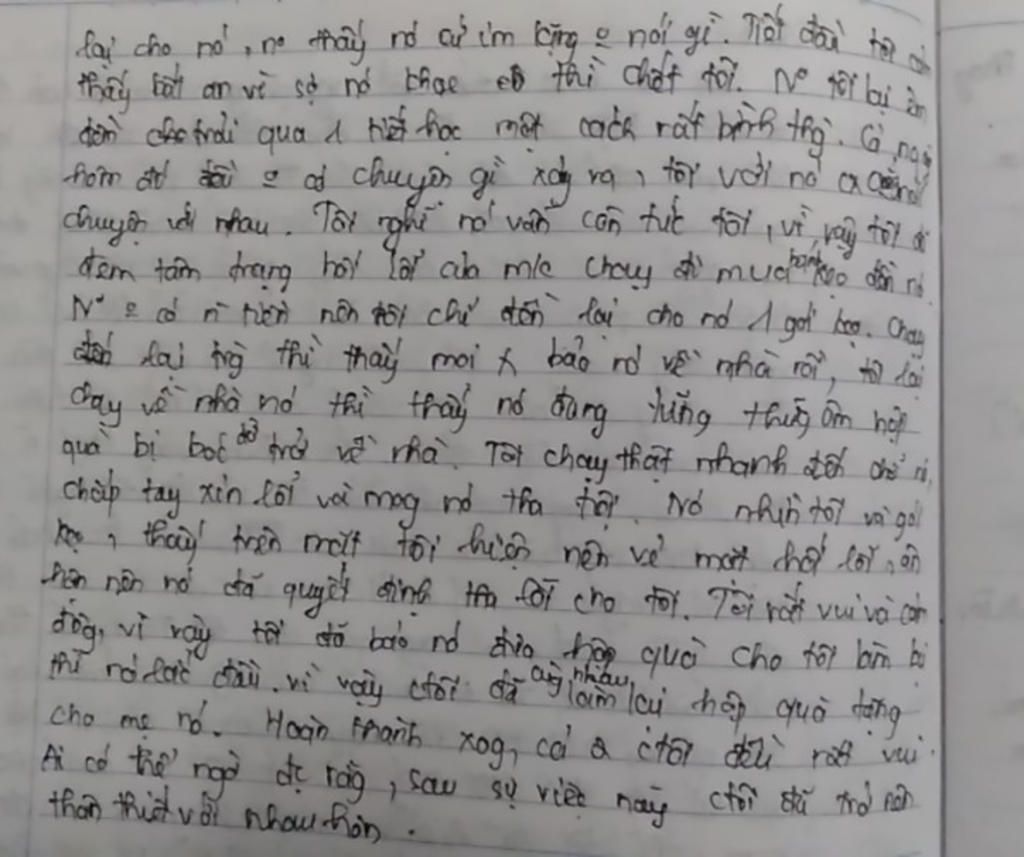 lại cho nó, no thấy nó cứ im lặng o nói gì. Tiết đầu tôi
thấy bất an vì sợ nó thì chết tôi. N° tôi lại
trải qua 1 tiết học một cách rất bình thg. Cả ngày
hôm đó o có chuyện gì xảy ra, tôi với nó
chuyện với nhau. Tôi nghĩ nó vẫn còn tức tôi, vì vậy tôi đi
đem tâm trạng hối lỗi của m/c chạy đi mua bánh kẹo đến nó.
N° o có n tiền nên tôi chỉ đền lại cho nó 1 gói kẹo. Chạy
lại trg thì thấy mọi x bảo nó về nhà rồi, tôi lại
chạy về nhà nó thì thấy nó đang lững thững ôm hộp
quà bị bóc dở trở về nhà. Tôi chạy thật nhanh đến chỗ nó,
chắp tay xin lỗi và mog nó tha tội. Nó nhìn tôi và gói
kẹo, thấy trên mặt tôi hiện nên vẻ mặt hối lỗi, ân
hận nên nó đã quyết định tha lỗi cho tôi. Tôi rất vui và cảm
độg, vì vậy tôi đã bảo nó đưa hộp quà cho tôi
thì nó lắc đầu. vì vậy ctôi đã cùg nhau làm lại hộp quà tặng
cho mẹ nó. Hoàn thành xog, cả 2 ctôi đều rất vui.
Ai có thể ngờ đc rằg, sau sự việc này ctôi đã trở nên
thân thiết với nhau hơn.